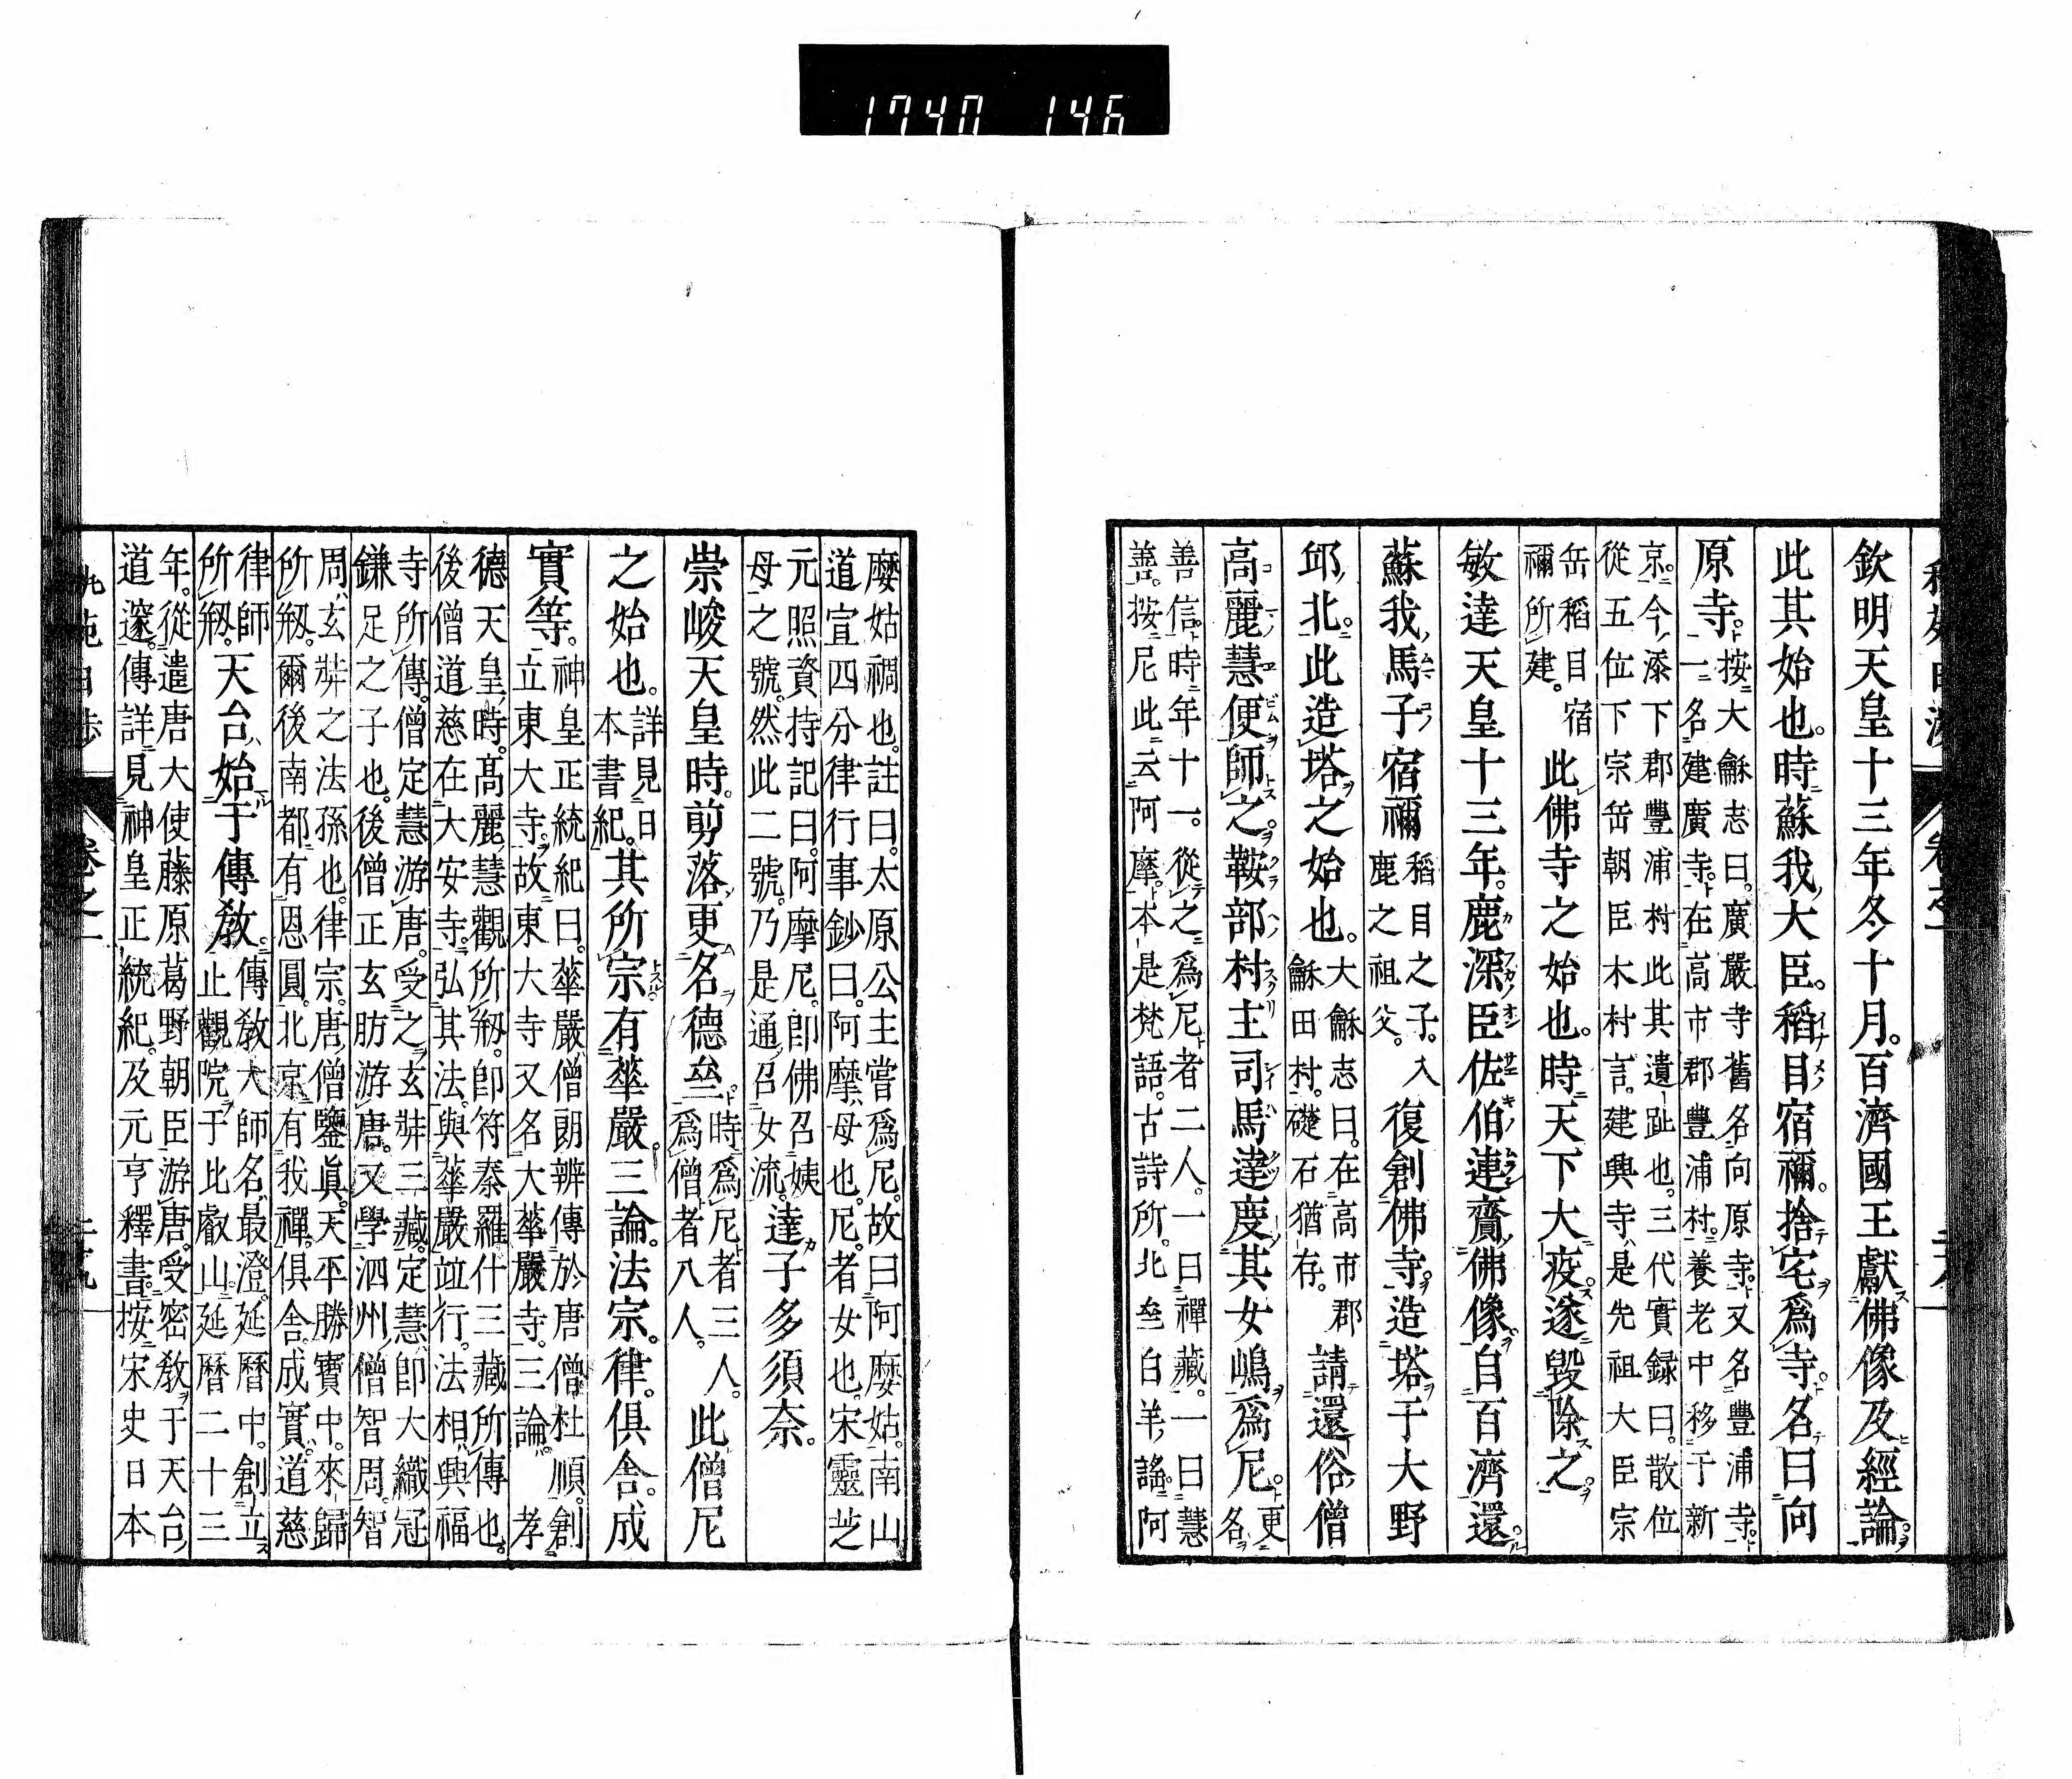 欽明天皇十三年冬十月。百濟國王獻佛像及經論。
此其始也。時蘇我大臣。稻目宿禰。捨宅爲寺。名曰向
原寺。按大龢志曰。廣嚴寺舊名向原寺。又名豐浦寺。
一名建廣寺。在高市郡豐浦村。養老中移于新
京。今添下郡豐浦村此其遺趾也。三代實録曰。散位
從五位下宗岳朝臣木村言。建興寺是先祖大臣宗
岳稻目宿
禰所建。此佛寺之始也。時天下大疫。遂毀除之。
敏達天皇十三年。鹿深臣佐伯連賷佛像。自百濟還。
蘇我馬子宿禰稻目之子。入
鹿之祖父。復創佛寺。造塔于大野
邱北。此造塔之始也。大龢志曰。在高市郡
龢田村。礎石猶存。請還俗僧
高麗慧便師之。鞍部村主司馬達慶其女嶋爲尼。更
名
善信。時年十一。從之爲尼者二人。一曰禪藏。一曰慧
善。按尼此云阿摩。本是梵語。古詩所。北亝白羊謠。阿
麼姑禂也。註曰。太原公主嘗爲尼。故曰阿麼姑。南山
道宣四分律行事鈔曰。阿摩母也。尼者女也。宋靈芝
元照資持記曰。阿摩尼。卽佛召姨
母之號。然此二號。乃是通召女流。達子多須奈。
崇峻天皇時。剪落更名德亝。時爲尼者三人。
爲僧者八人。此僧尼
之始也。詳見日
本書紀。其所宗有華嚴。三論。法宗。律。俱舍。成
實等。神皇正統紀曰。華嚴僧朗辨傳於唐僧杜順。創
立東大寺。故東大寺又名大華嚴寺。三論。孝
德天皇時。髙麗慧觀所剏。卽符秦羅什三藏所傳也。
後僧道慈在大安寺。弘其法。與華嚴竝行。法相興福
寺所傳。僧定慧游唐。受之玄奘三藏。定慧卽大織冠
鎌足之子也。後僧正玄肪游唐。又學泗州僧智周。智
周玄奘之法孫也。律宗。唐僧鑒眞。天平勝寶中。來歸
所剏。爾後南都有恩圓。北京有我禪。俱舍。成實。道慈
律師
所剏。天台始于傳敎。傳敎大師名最澄。延曆中。創立
止觀院于比叡山。延曆二十三
年。從遣唐大使藤原葛野朝臣游唐。受密敎于天台
道邃。傳詳見神皇正統紀。及元亨釋書。按宋史日本